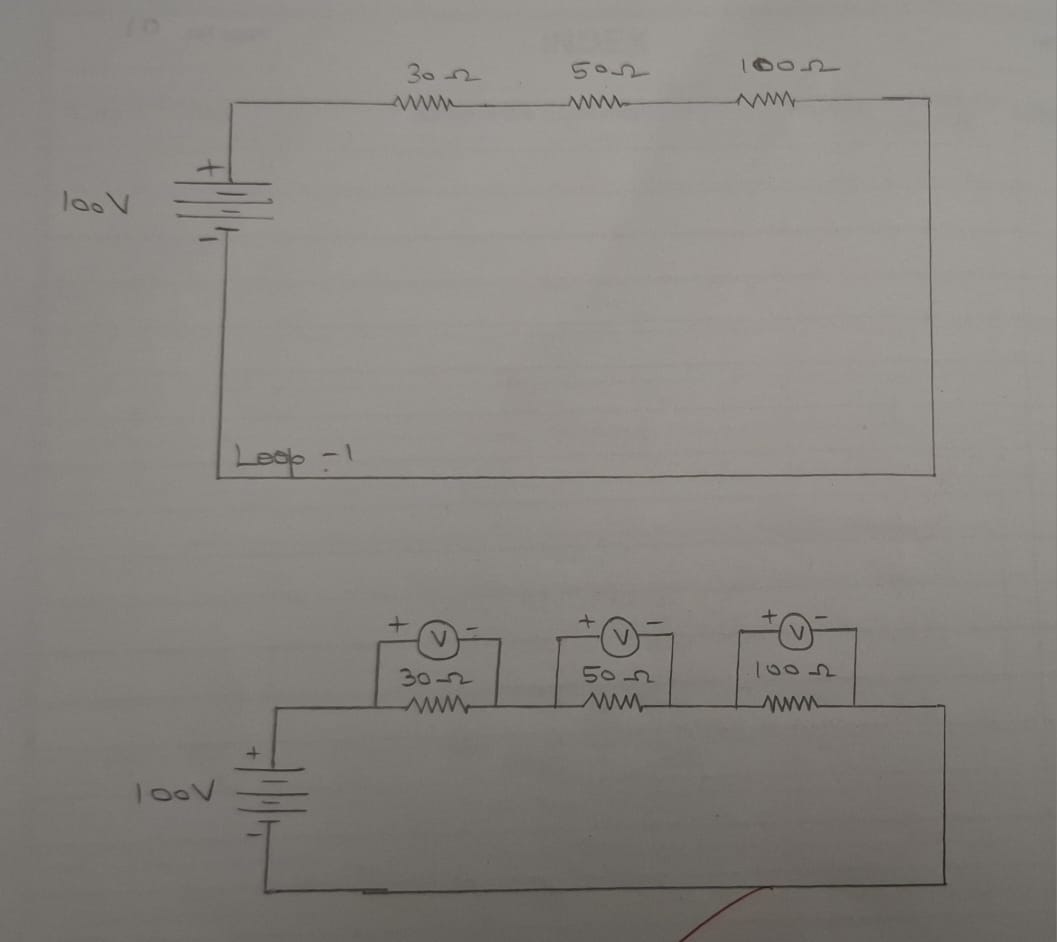 30Ω 50Ω 100Ω
+
100V
-
Loop :- 1
+ V - + V - + V -
30Ω 50Ω 100Ω
+
100V
-